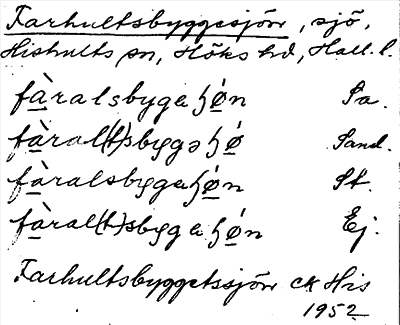 Farhultsbyggesjön, sjö,
Hishults sn, Höks hd, Hall. l.
fàralsbygeɧó̱n Pa.
fàral(t)sbyggəɧó̱ Sand.
fàralsbygeɧó̱n St.
fàral(t)sbygeɧó̱n Ej.
Farhultsbyggetssjön ck His
1952